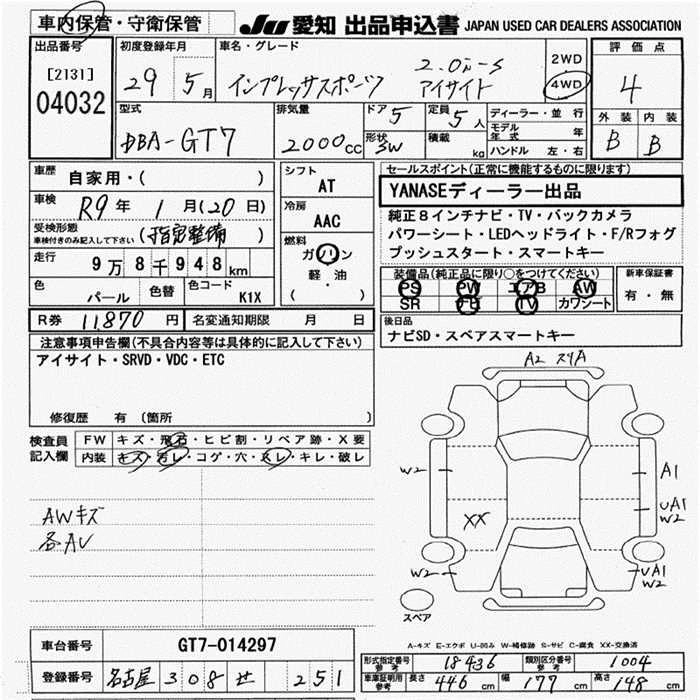 車内保管・守衛保管
JU 愛知 出品申込書 JAPAN USED CAR DEALERS ASSOCIATION
出品番号 [2131] 04032
初度登録年月 29 5月
車名・グレード インプレッサスポーツ 2.0i-S アイサイト
2WD
4WD
評価点 4
外装 内装
B B
型式 DBA-GT7
排気量 2000cc
ドア 5
形状 5W
定員 5人
積載 kg
ディーラー・並行
モデル年式 年
ハンドル 左・右
車歴 自家用・( )
車検 R9年 1月(20日)
受検形態 車検付きのみ記入して下さい (指定整備)
走行 9万8千948km
色 パール 色替 色コード K1X
シフト AT
冷房 AAC
燃料 ガソリン
軽・油
(・ )
セールスポイント(正常に機能するものに限ります)
YANASEディーラー出品
純正8インチナビ・TV・バックカメラ
パワーシート・LEDヘッドライト・F/Rフォグ
プッシュスタート・スマートキー
装備品(純正品に限り○をつけてください)
PS PW エアB AW
SR ナビ TV カワシート
新車保証書
有・無
後日品
ナビSD・スペアスマートキー
R券 11,870円 名変通知期限 月 日
注意事項申告欄(不具合内容等は具体的に記入して下さい)
アイサイト・SRVD・VDC・ETC
修復歴 有 (箇所
検査員記入欄
FW キズ・飛石・ヒビ割・リペア跡・X要
内装 キズ・汚レ・コゲ・穴・スレ・キレ・破レ
AWキズ
各AU
A2 スリA
W2
A1
UA1
W2
XX
W2
UA1
W2
スペア
A-キズ E-エクボ U-凹み W-補修跡 S-サビ C-腐食 XX-交換済
車台番号 GT7-014297
登録番号 名古屋 308 せ 251
形式指定番号 参考 18436
類別区分番号 参考 1004
車庫証明用 参考 長さ 446cm 幅 177cm 高さ 148cm